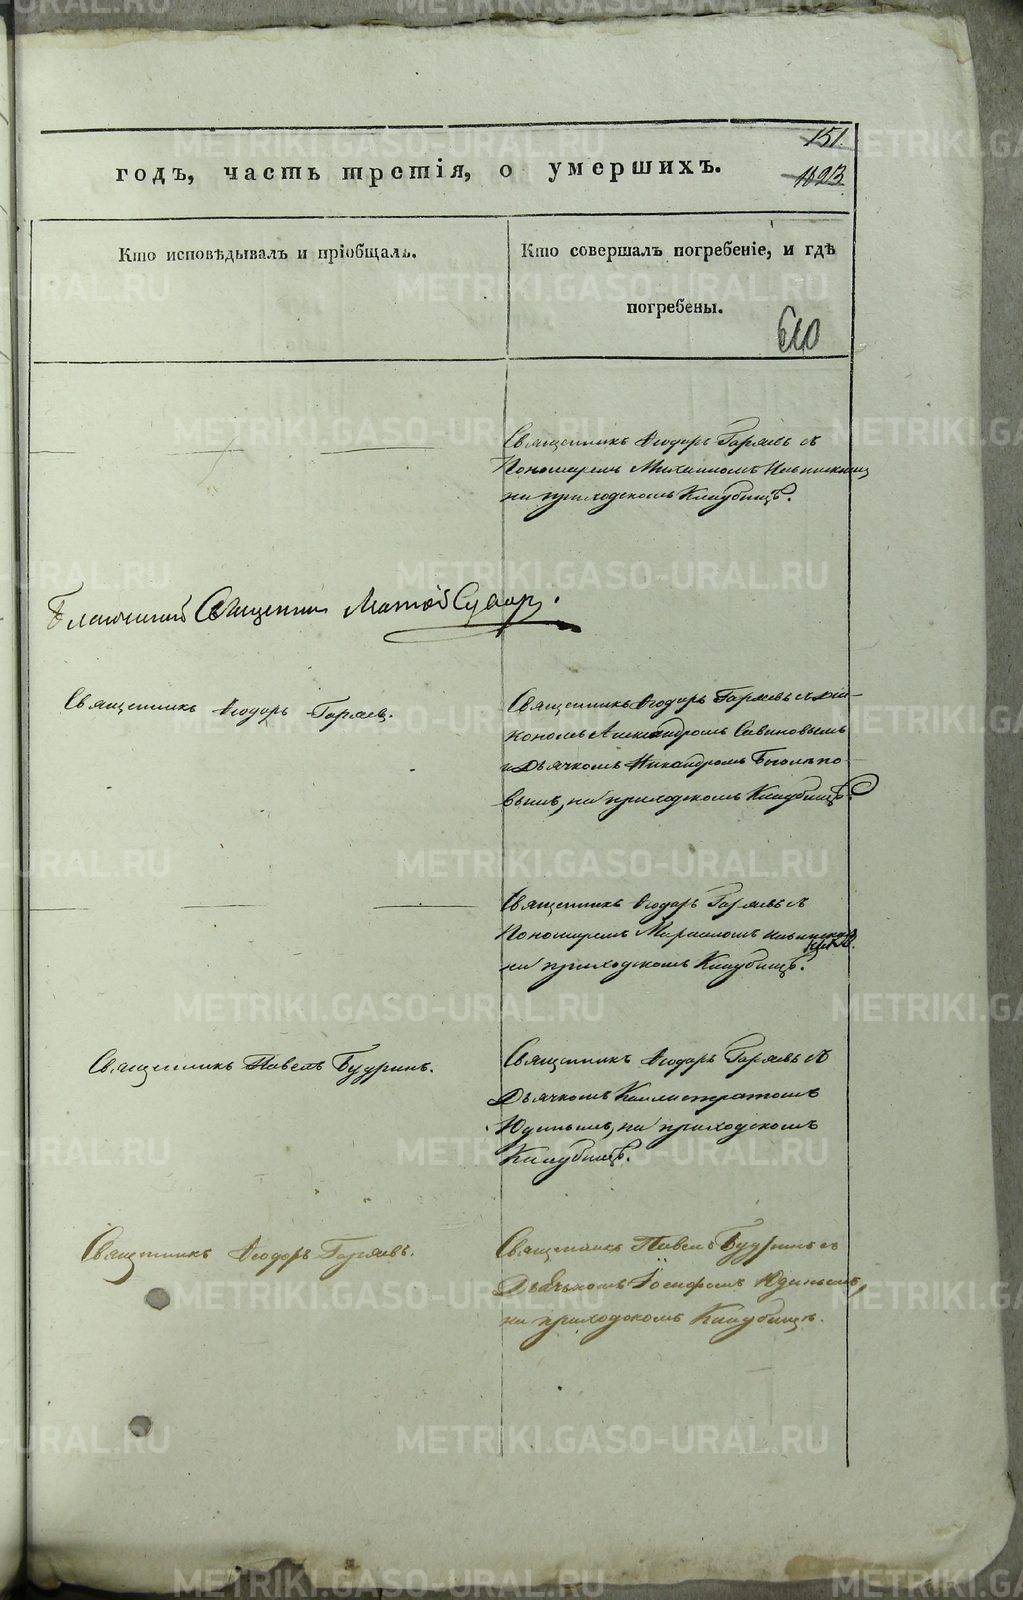 151.
годъ, часть третія, о умершихъ.
1023.
Кто исповѣдывалъ и пріобщалъ.
Кто совершалъ погребеніе, и гдѣ
погребены.
610
Священникъ Ѳеодоръ Горяевъ съ
Пономаремъ
на приходскомъ Кладбищѣ.
Благочинный Священникъ
Священникъ Ѳеодоръ Горяевъ.
Священникъ Ѳеодоръ Горяевъ съ діа-
кономъ Александромъ Савиновымъ
и Дьячкомъ Никандромъ Боголѣпо-
вымъ, на приходскомъ Кладбищѣ.
Священникъ Ѳеодоръ Горяевъ съ
Пономаремъ
на приходскомъ Кладбищѣ.
Священникъ Павелъ Будринъ.
Священникъ Ѳеодоръ Горяевъ съ
Дьячкомъ Каллистратомъ
Юдинымъ, на приходскомъ
Кладбищѣ.
Священникъ Ѳеодоръ Горяевъ.
Священникъ Павелъ Будринъ съ
Дьячкомъ Іосифомъ Юдинымъ,
на приходскомъ Кладбищѣ.
METRIKI.GASO-URAL.RU